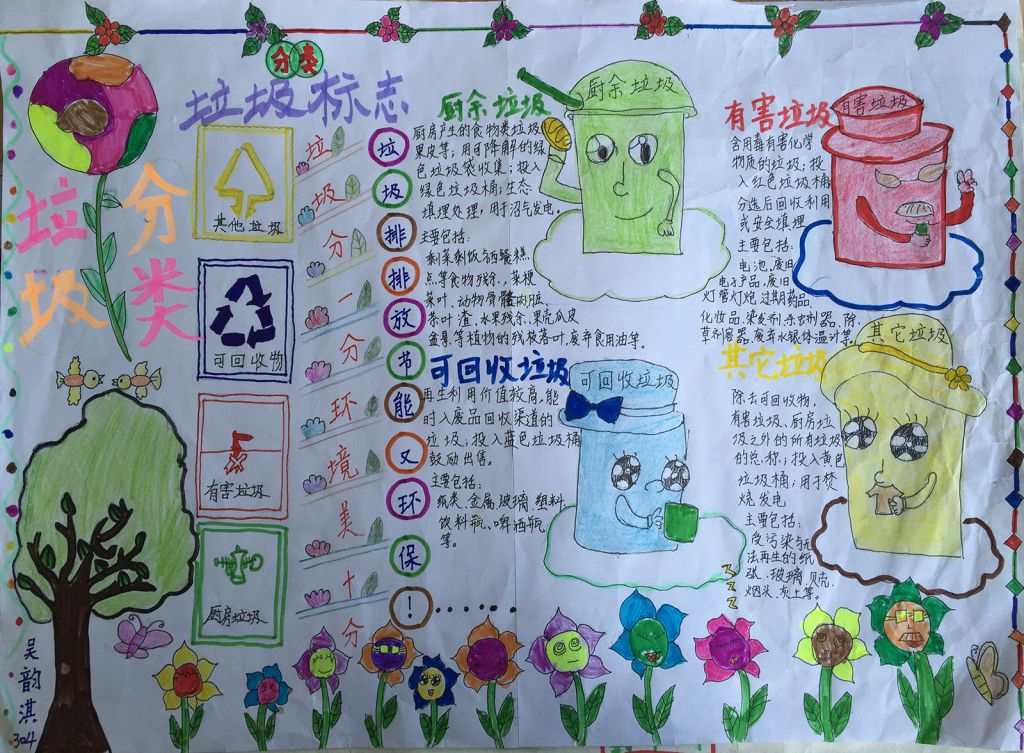 分类
垃圾标志
垃圾
分类
其他垃圾
可回收物
有害垃圾
厨房垃圾
垃圾分一分
环境美十分
垃圾排排放
节能又环保!......
厨余垃圾
厨余垃圾
厨房产生的食物类垃圾
果皮等;用可降解的绿
色垃圾袋收集;投入
绿色垃圾桶;生态
填埋处理,用于沼气发电。
主要包括:
剩菜剩饭
点等食物残余,菜梗
菜叶、动物骨骼内脏、
茶叶渣、水果残余、果壳瓜皮
盆景等植物的残枝落叶、废弃食用油等。
可回收垃圾
可回收垃圾
再生利用价值较高,能
时入废品回收渠道的
垃圾;投入蓝色垃圾桶
鼓励出售。
主要包括:
纸类、金属、玻璃、塑料
饮料瓶、啤酒瓶
等。
有害垃圾
有害垃圾
含用毒有害化学
物质的垃圾;投
入红色垃圾桶
分选后回收利用
或安全填埋
主要包括:
电池、废旧
电子产品、废旧
灯管灯炮、过期药品、
化妆品、染发剂、杀虫剂器、除
草剂容器、废弃水银体温计等。
其它垃圾
其它垃圾
除去可回收物,
有害垃圾、厨房垃
圾之外的所有垃圾
的总称;投入黄色
垃圾桶;用于焚
烧发电
主要包括:
受污染与无
法再生的纸
张、玻璃、贝壳、
烟头、灰土等。
吴韵淇
304